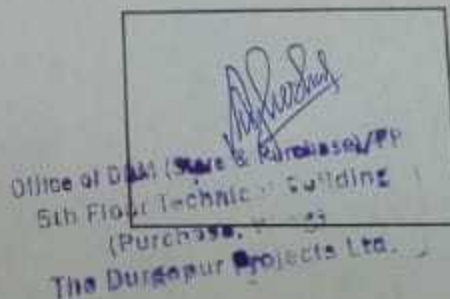 Office of DGM (Store & Purchase)/PP
5th Floor Technical Building
(Purchase,
The Durgapur Projects Ltd.